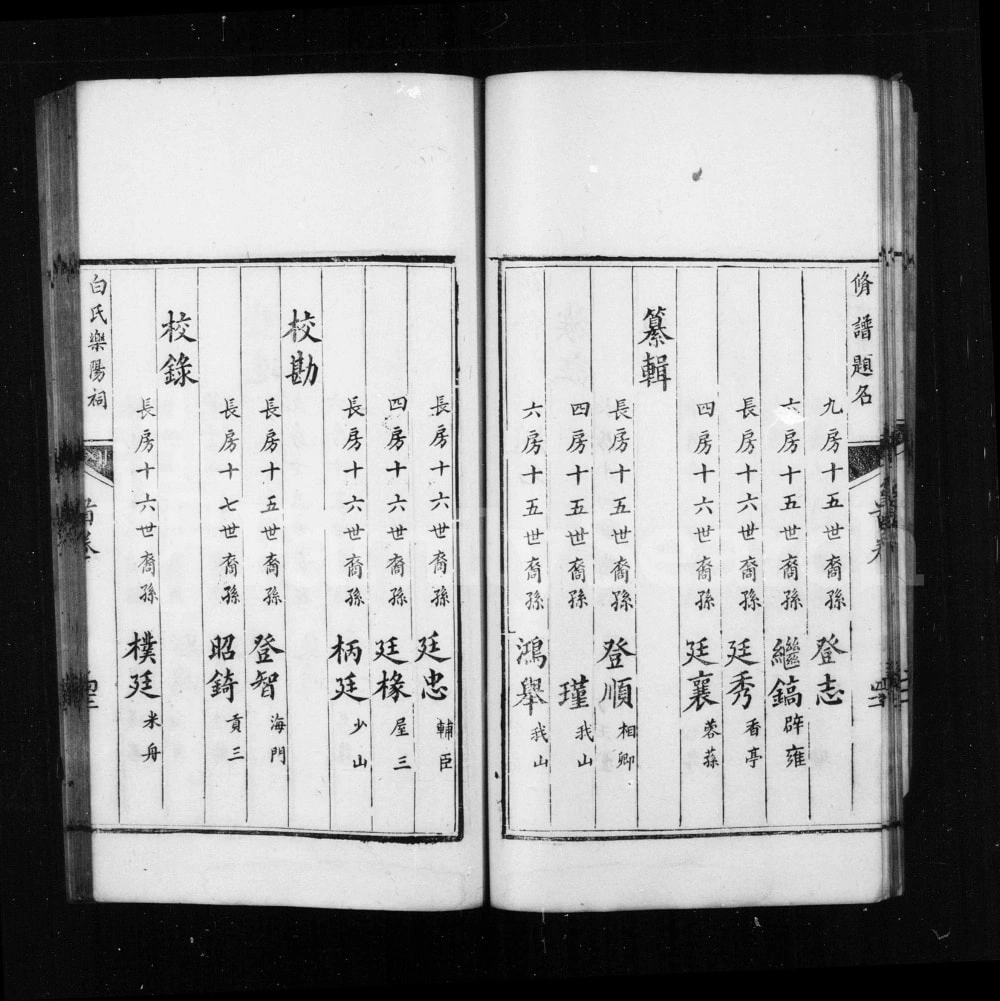 脩譜題名
九房十五世裔孫 登志
六房十五世裔孫 繼鎬 辟雍
長房十六世裔孫 廷秀 香亭
四房十六世裔孫 廷襄 蓉蓀
纂輯
長房十五世裔孫 登順 相卿
四房十五世裔孫 瑾 我山
六房十五世裔孫 鴻舉 我山
長房十六世裔孫 廷忠 輔臣
四房十六世裔孫 廷椽 屋三
長房十六世裔孫 柄廷 少山
校勘
長房十五世裔孫 登智 海門
長房十七世裔孫 昭錡 貢三
校錄
長房十六世裔孫 樸廷 米舟
白氏樂陽祠
首卷